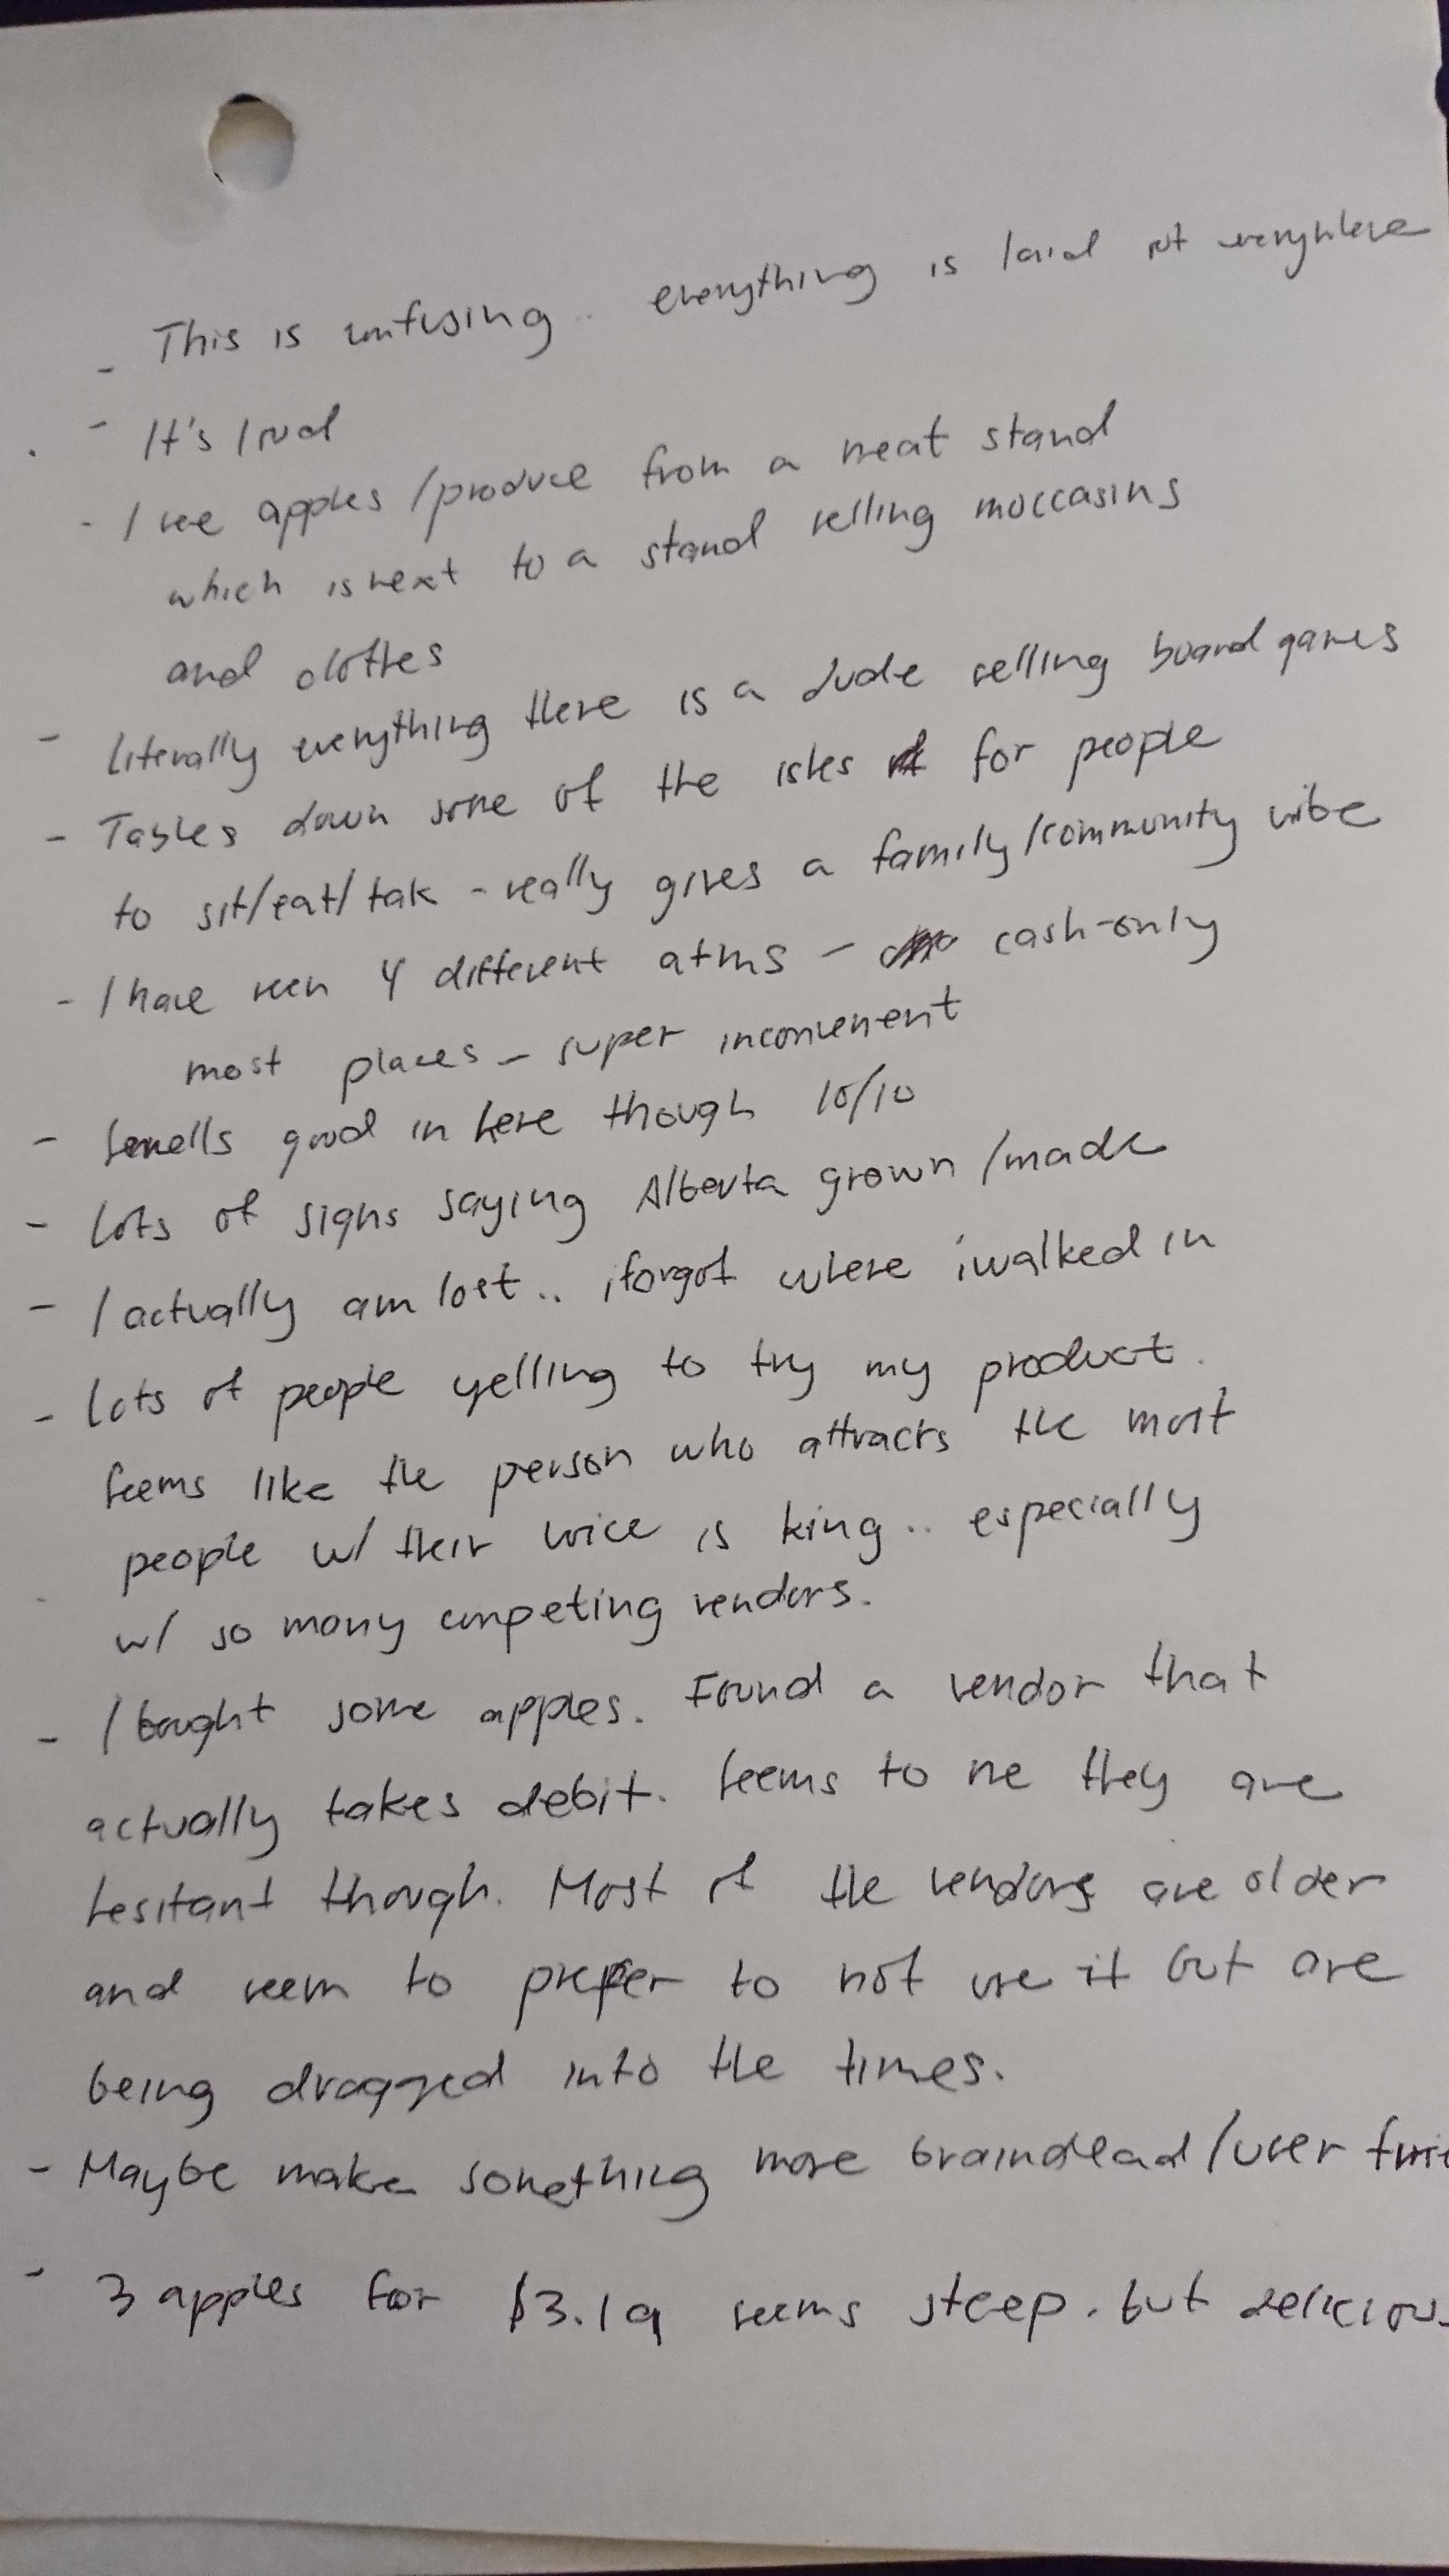 - This is confusing.. everything is laid out everywhere
- It's loud
- I see apples/produce from a meat stand
which is next to a stand selling moccasins
and clothes
- literally everything there is a dude selling board games
- Tables down some of the isles for people
to sit/eat/talk - really gives a family/community vibe
- I have seen 4 different atms - cash-only
most places - super inconvenient
- smells good in here though 10/10
- lots of signs saying Alberta grown/made
- I actually am lost.. i forgot where i walked in
- lots of people yelling to try my product.
Seems like the person who attracts the most
people w/ their voice is king.. especially
w/ so many competing vendors.
- I bought some apples. Found a vendor that
actually takes debit. Seems to me they are
hesitant though. Most of the vendors are older
and seem to prefer to not use it but are
being dragged into the times.
- Maybe make something more braindead/user
- 3 apples for $3.19 seems steep. but delicious